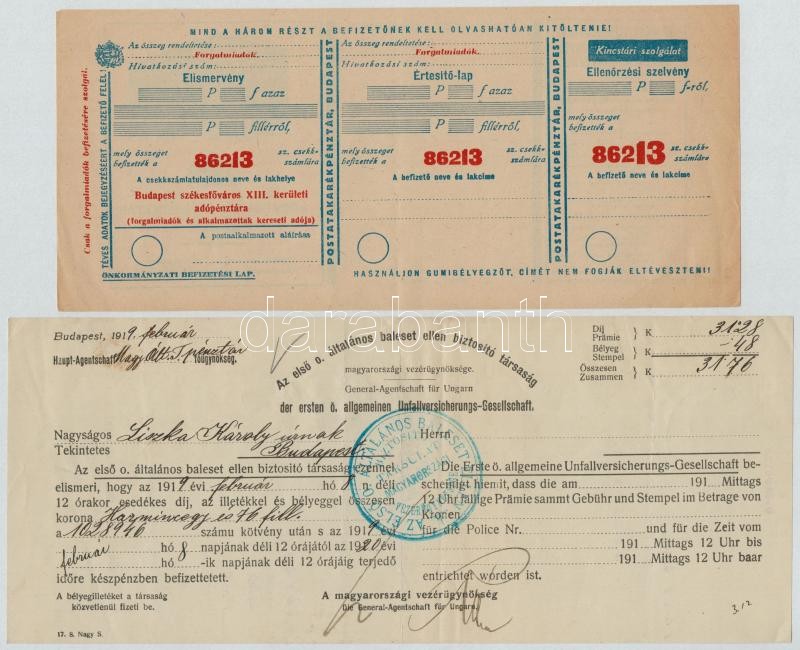 MIND A HÁROM RÉSZT A BEFIZETŐNEK KELL OLVASHATÓAN KITÖLTENIE!
Csak a forgalmiadók befizetésére szolgál.
TÉVES ADATOK BEJEGYZÉSÉÉRT A BEFIZETŐ FELEL!
Az összeg rendeltetése:
Forgalmiadók.
Hivatkozási szám:
Elismervény
P f azaz
P fillérről,
mely összeget befizették a
86213
sz. csekk-számlára
A csekkszámlatulajdonos neve és lakhelye
Budapest székesfőváros XIII. kerületi
adópénztára
(forgalmiadók és alkalmazottak kereseti adója)
A postaalkalmazott aláírása
ÖNKORMÁNYZATI BEFIZETÉSI LAP.
POSTATAKARÉKPÉNZTÁR, BUDAPEST
Az összeg rendeltetése:
Forgalmiadók.
Hivatkozási szám:
Értesitő-lap
P f azaz
P fillérről,
mely összeget befizették a
86213
sz. csekk-számlára
A befizető neve és lakcíme
HASZNÁLJON GUMIBÉLYEGZŐT, CÍMÉT NEM FOGJÁK ELTÉVESZTENI!
POSTATAKARÉKPÉNZTÁR, BUDAPEST
Kincstári szolgálat
Ellenőrzési szelvény
P f-ről,
mely összeget befizették a
86213
sz. csekk-számlára
A befizető neve és lakcíme
darabanth
Budapest, 1919 február
Haupt-Agentschaft főügynökség.
Az első o. általános baleset ellen biztositó társaság
magyarországi vezérügynöksége.
General-Agentschaft für Ungarn
der ersten ö. allgemeinen Unfallversicherungs-Gesellschaft.
Díj
Prämie K 31·28
Bélyeg
Stempel K -·48
Összesen
Zusammen K 31·76
Nagyságos
Tekintetes Liszka Károly úrnak
Budapest
Az első o. általános baleset ellen biztositó társaság ezennel
elismeri, hogy az 1919 évi február hó 8 n déli
12 órakor esedékes díj, az illetékkel és bélyeggel összesen
korona Harmincegy és 76 fill.
a 1028946 számu kötvény után s az 1919 évi
február hó 8 napjának déli 12 órájától az 1920 évi
hó -ik napjának déli 12 órájáig terjedő
időre készpénzben befizettetett.
A bélyegilletéket a társaság
közvetlenül fizeti be.
A magyarországi vezérügynökség
Die General-Agentschaft für Ungarn.
17. S. Nagy S.
Herrn
Die Erste ö. allgemeine Unfallversicherungs-Gesellschaft be-
scheinigt hiemit, dass die am 191 Mittags
12 Uhr fällige Prämie sammt Gebühr und Stempel im Betrage von
Kronen
für die Police Nr. und für die Zeit vom
191 Mittags 12 Uhr bis
191 Mittags 12 Uhr baar
entrichtet worden ist.
3.12